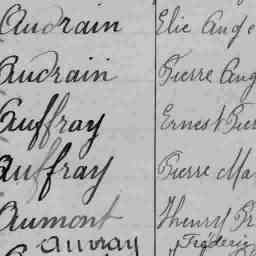 Audrain Elie Auge
Audrain Pierre Aug
Auffray Ernest Pier
Auffray Pierre Ma
Aumont Thenry Fr
Auvray Frédéric